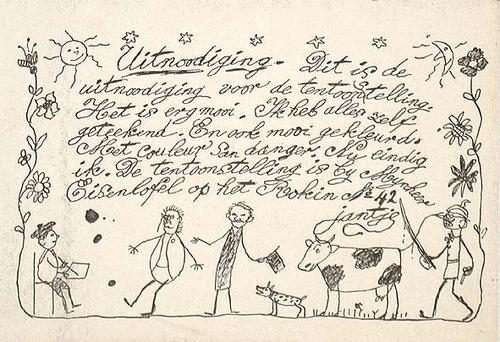 Uitnoodiging. Dit is de
uitnoodiging voor de tentoonstelling.
Het is erg mooi. Ik heb alles zelf
geteekend. En ook mooi gekleurd.
Met couleur San danger. Nu eindig
ik. De tentoonstelling is by Meynheer
Eisenlofel op het Rokin No 42
Jantje